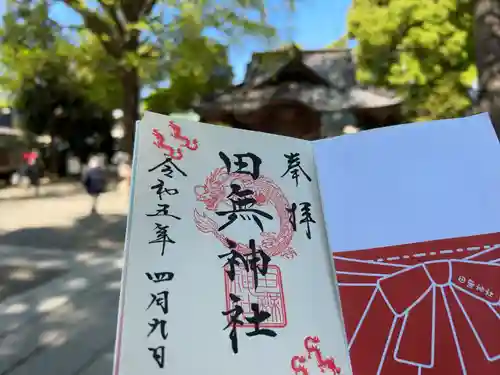 奉拝
田無神社
令和五年
四月九日
田無神社